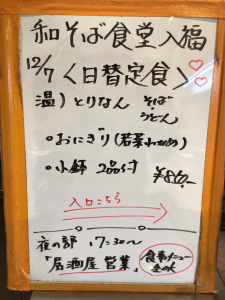 和そば食堂入福
12/7〈日替定食〉
温)とりなん そば・うどん
・おにぎり(若菜わかめ)
・小鉢 2品付
¥860.-
入口こちら
夜の部 17:30〜
「居酒屋営業」
食事メニュー